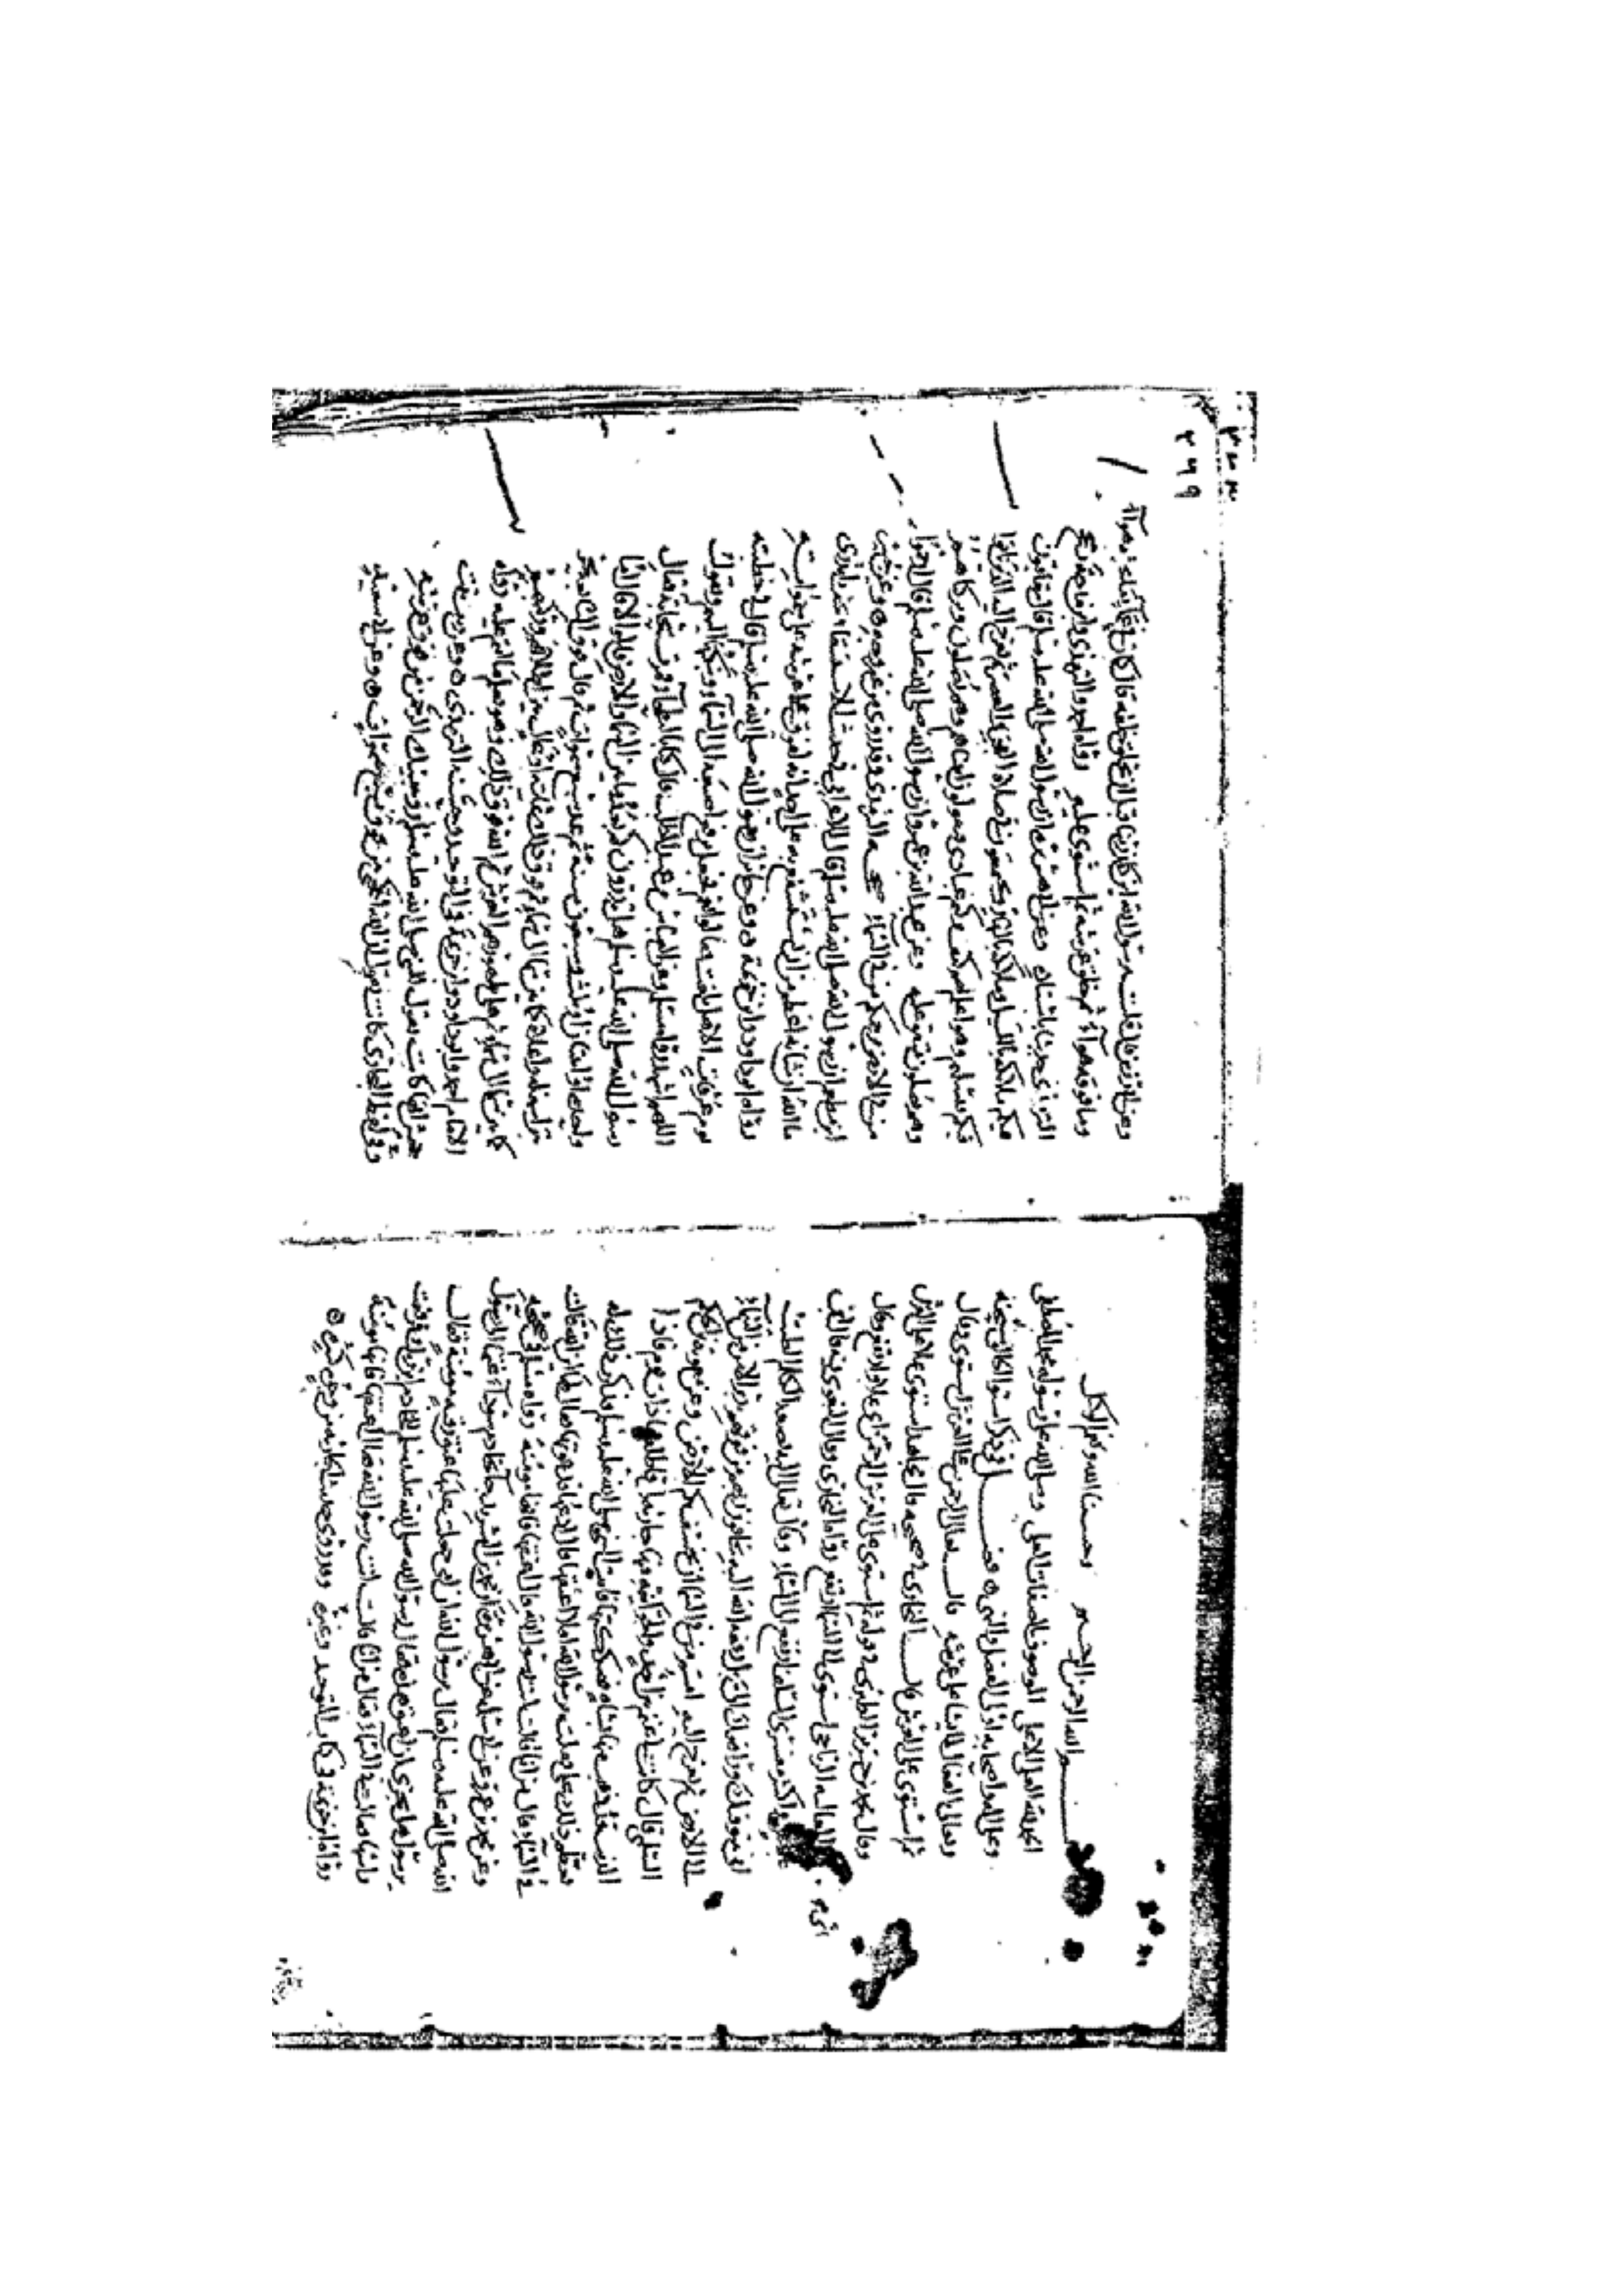 بسم الله الرحمن الرحيم وحسبنا الله ونعم الوكيل
الحمد لله العلي الاعلى الموصوف بالصفات العلى وصلى الله على رسوله محمد المصطفى
وعلى اله واصحابه اولي الفضل والنهى ه فصل في ذكر استواء الله سبحانه
وتعالى الفعال لما يشاء على عرشه قال تعالى الرحمن على العرش استوى وقال
ثم استوى على العرش قال البخاري في صحيحه قال مجاهد استوى علا على العرش
وقال محمد بن جرير الطبري في قوله ثم استوى على العرش الرحمن اي علا وارتفع وقال
ابو العاليه الرياحي استوى الى السماء ارتفع رواه البخاري وقال البغوي
اكثر مفسري السلف ارتفع الى السماء وقال تعالى اليه يصعد الكلم الطيب
اني متوفيك ورافعك الي بل رفعه الله اليه يخافون ربهم من فوقهم يدبر الامر من السماء
الى الارض ثم يعرج اليه أأمنتم من في السماء ان يخسف بكم الارض وعن معوية بن الحكم
السلمي قال كانت لي غنم بين احد والجوانية فيها جارية لي فاطلعتها ذات يوم فاذا
الذئب قد ذهب منها بشاة فصككتها فاتيت النبي صلى الله عليه وسلم فذكرت ذلك له
فعظم ذلك علي فقلت يرسول الله افلا اعتقها قال ادعها فدعوتها فقال لها اين الله قالت
في السماء قال من انا قالت انت رسول الله قال اعتقها فانها مؤمنة رواه مسلم في صحيحه
وعن محمد بن عمرو عن ابي سلمة عن ابي هريرة ان محمد بن الشريد جاء بخادم سوداء الى رسول
الله صلى الله عليه وسلم فقال يرسول الله ان امي جعلت عليها عتق رقبة مؤمنة فقال
يرسول الله هل يجزي ان اعتق هذه فقال رسول الله صلى الله عليه وسلم للخادم اين الله فرفعت
راسها فقالت في السماء فقال من انا قالت انت رسول الله فقال اعتقها فانها مؤمنة
رواه ابن خزيمة في كتاب التوحيد وغيره وقد روي حديث الجارية من وجوه كثيرة ه
٣٦٩
وعن ابي رزين قال قلت يرسول الله اين كان ربنا قبل ان يخلق خلقه قال كان في عماء ما تحته هواء
وما فوقه هواء ثم خلق عرشه ثم استوى عليه رواه احمد والترمذي وابن ماجه
الترمذي وعن ابي هريرة ان رسول الله صلى الله عليه وسلم قال يتعاقبون
فيكم ملائكة بالليل وملائكة بالنهار ويجتمعون في صلاة الفجر والعصر ثم يعرج اليه الذين باتوا
فيكم فيسئلهم وهو اعلم بهم كيف تركتم عبادي فيقولون وهم يصلون وتركناهم
وهم يصلون متفق عليه وعن عبد الله بن عمرو ان رسول الله صلى الله عليه وسلم قال ارحموا
من في الارض يرحمكم من في السماء صححه الترمذي وقد روي من غير وجه ه وعن جبير
ابن مطعم ان رسول الله صلى الله عليه وسلم قال للاعرابي اتدري
ما الله ان شانه اعظم من ان يستشفع به على احد انه لفوق عرشه على سمواته
رواه ابو داود وابن خزيمة ه وعن جابر ان رسول الله صلى الله عليه وسلم قال في خطبته
يوم عرفة الا هل بلغت فقالوا نعم فجعل يرفع اصبعه الى السماء وينكتها اليهم ويقول
اللهم اشهد رواه مسلم وعن العباس بن عبد المطلب قال كنا بالبطحاء فمرت سحابة فقال
رسول الله صلى الله عليه وسلم هل تدرون كم بعد ما بين السماء والارض قالوا لا قال اما
واحدة او اثنتان او ثلث وسبعون سنة ثم عد سبع سموات ثم قال فوق السابعة بحر
بين اسفله واعلاه كما بين سماء الى سماء ثم فوق ذلك ثمانية اوعال بين اظلافهن وركبهن
كما بين سماء الى سماء ثم على ظهورهن العرش ثم الله فوق ذلك وهو يعلم ما انتم عليه رواه
الامام احمد وابو داود وابن خزيمة في التوحيد وحسنه الترمذي ه وعن زينب بنت
جحش انها كانت تقول للنبي صلى الله عليه وسلم زوجنيك الرحمن من فوق عرشه
وفي لفظ البخاري كانت تقول ان الله انكحني من فوق سبع سموات ه وعن ابي سعيد